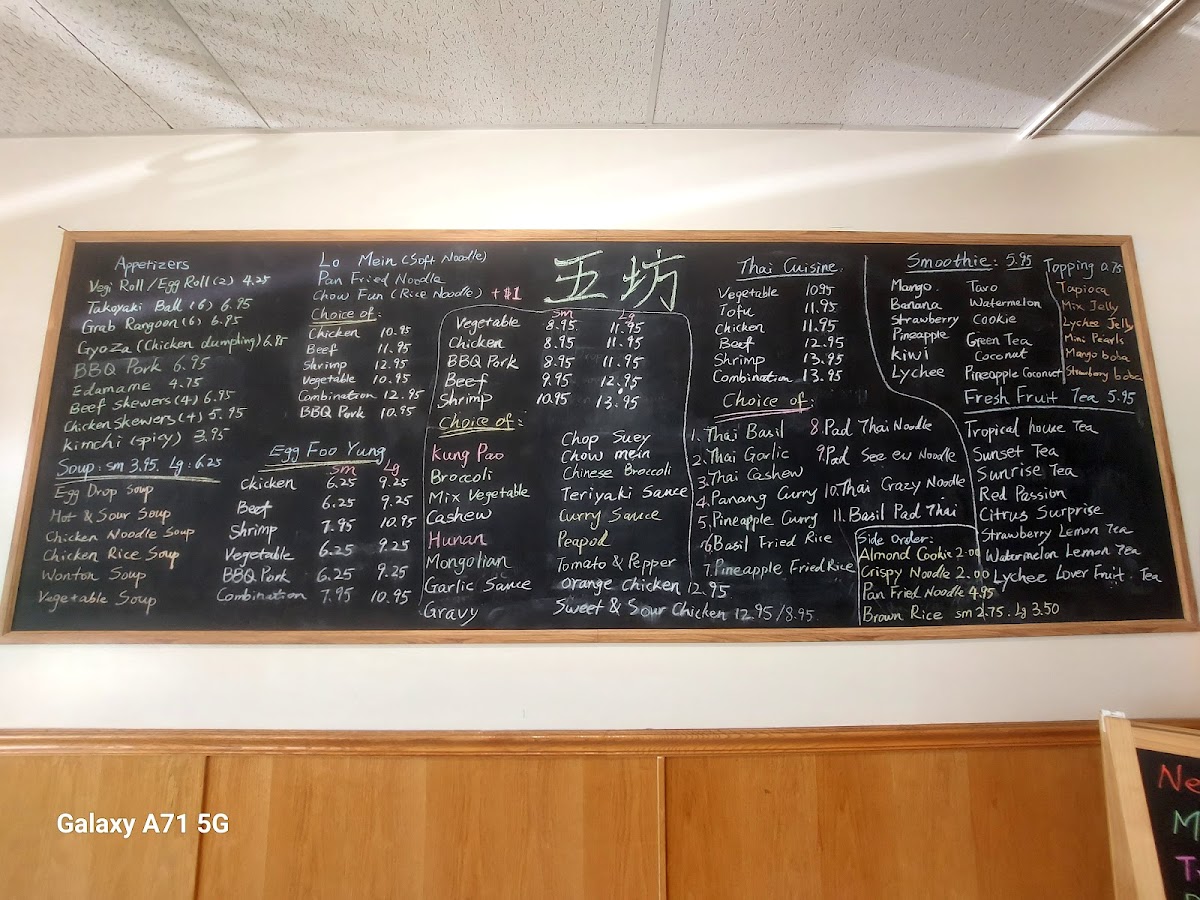 Appetizers
Vegi Roll/Egg Roll(2) 4.25
Takoyaki Ball (6) 6.95
Grab Rangoon (6) 6.95
Gyoza (Chicken dumpling) 6.95
BBQ Pork 6.95
Edamame 4.75
Beef skewers (4) 6.95
Chicken skewers (4) 5.95
kimchi (spicy) 3.95
Soup: sm 3.95. Lg: 6.25
Egg Drop Soup
Hot & Sour Soup
Chicken Noodle Soup
Chicken Rice Soup
Wonton Soup
Vegetable Soup
Lo Mein (Soft Noodle)
Pan Fried Noodle
Chow Fun (Rice Noodle) +$1
Choice of:
Chicken 10.95
Beef 11.95
Shrimp 12.95
Vegetable 10.95
Combination 12.95
BBQ Pork 10.95
Egg Foo Yung
sm Lg
Chicken 6.25 9.25
Beef 6.25 9.25
Shrimp 7.95 10.95
Vegetable 6.25 9.25
BBQ Pork 6.25 9.25
Combination 7.95 10.95
五坊
sm Lg
Vegetable 8.95 11.95
Chicken 8.95 11.95
BBQ Pork 8.95 11.95
Beef 9.95 12.95
Shrimp 10.95 13.95
Choice of:
Kung Pao
Broccoli
Mix Vegetable
Cashew
Hunan
Mongolian
Garlic Sauce
Gravy
Chop Suey
Chow mein
Chinese Broccoli
Teriyaki Sauce
Curry Sauce
Peapod
Tomato & Pepper
Orange Chicken 12.95
Sweet & Sour Chicken 12.95/8.95
Thai Cuisine
Vegetable 1095
Tofu 11.95
Chicken 11.95
Beef 12.95
Shrimp 13.95
Combination 13.95
Choice of:
1. Thai Basil
2. Thai Garlic
3. Thai Cashew
4. Panang Curry
5. Pineapple Curry
6. Basil Fried Rice
7. Pineapple Fried Rice
8. Pad Thai Noodle
9. Pad See ew Noodle
10. Thai Crazy Noodle
11. Basil Pad Thai
Side Order:
Almond Cookie 2.00
Crispy Noodle 2.00
Pan Fried Noodle 4.95
Brown Rice sm 2.75. Lg 3.50
Smoothie: 5.95
Mango
Banana
Strawberry
Pineapple
kiwi
Lychee
Taro
Watermelon
Cookie
Green Tea
Coconut
Pineapple Coconut
Topping 0.75
Tapioca
Mix Jelly
Lychee Jelly
Mini Pearls
Mango boba
Strawberry boba
Fresh Fruit Tea 5.95
Tropical house Tea
Sunset Tea
Sunrise Tea
Red Passion
Citrus Surprise
Strawberry Lemon Tea
Watermelon Lemon Tea
Lychee Lover Fruit. Tea
Galaxy A71 5G